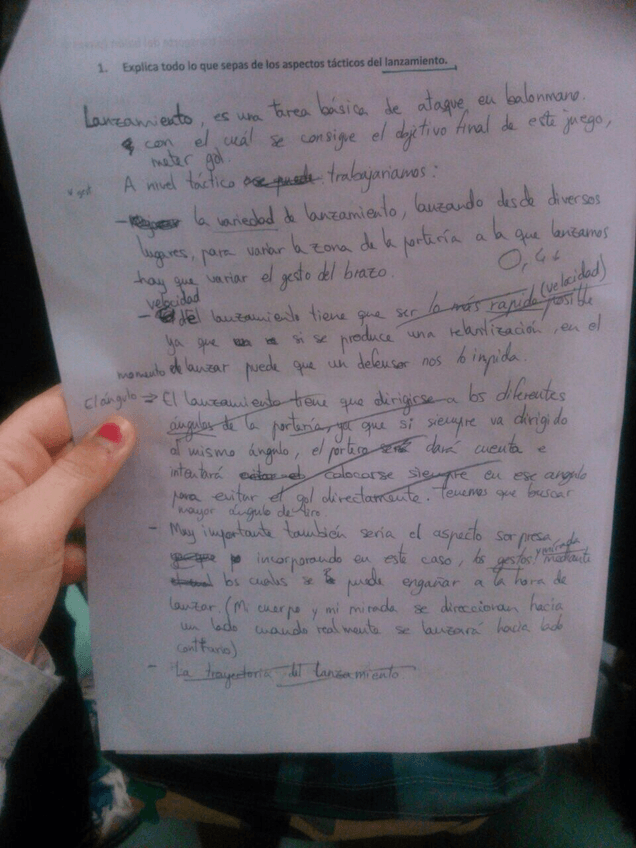 1. Explica todo lo que sepas de los aspectos tácticos del lanzamiento.
Lanzamiento, es una tarea básica de ataque, en balonmano.
con el cuál se consigue el objetivo final de este juego,
meter gol.
A nivel táctico se puede trabajaríamos:
- la variedad de lanzamiento, lanzando desde diversos
lugares, para variar la zona de la portería a la que lanzamos
hay que variar el gesto del brazo.
velocidad
- del lanzamiento tiene que ser lo más rápido (velocidad) posible
ya que si se produce una relantilización, en el
momento d lanzar puede que un defensor nos lo inpida.
El ángulo ⇒ El lanzamiento tiene que dirigirse a los diferentes
ángulos de la portería, ya que si siempre va dirigido
al mismo ángulo, el portero será dará cuenta e
intentará evitar el colocarse siempre en ese angulo
para evitar el gol directamente. Tenemos que buscar
mayor ángulo de tiro.
- Muy importante también sería el aspecto sorpresa
incorporando en este caso, los gestos y mirada mediante
los cuales se puede engañar a la hora de
lanzar. (Mi cuerpo y mi mirada se direccionan hacia
un lado cuando realmente se lanzará hacia lado
contrario)
- La trayectoria del lanzamiento